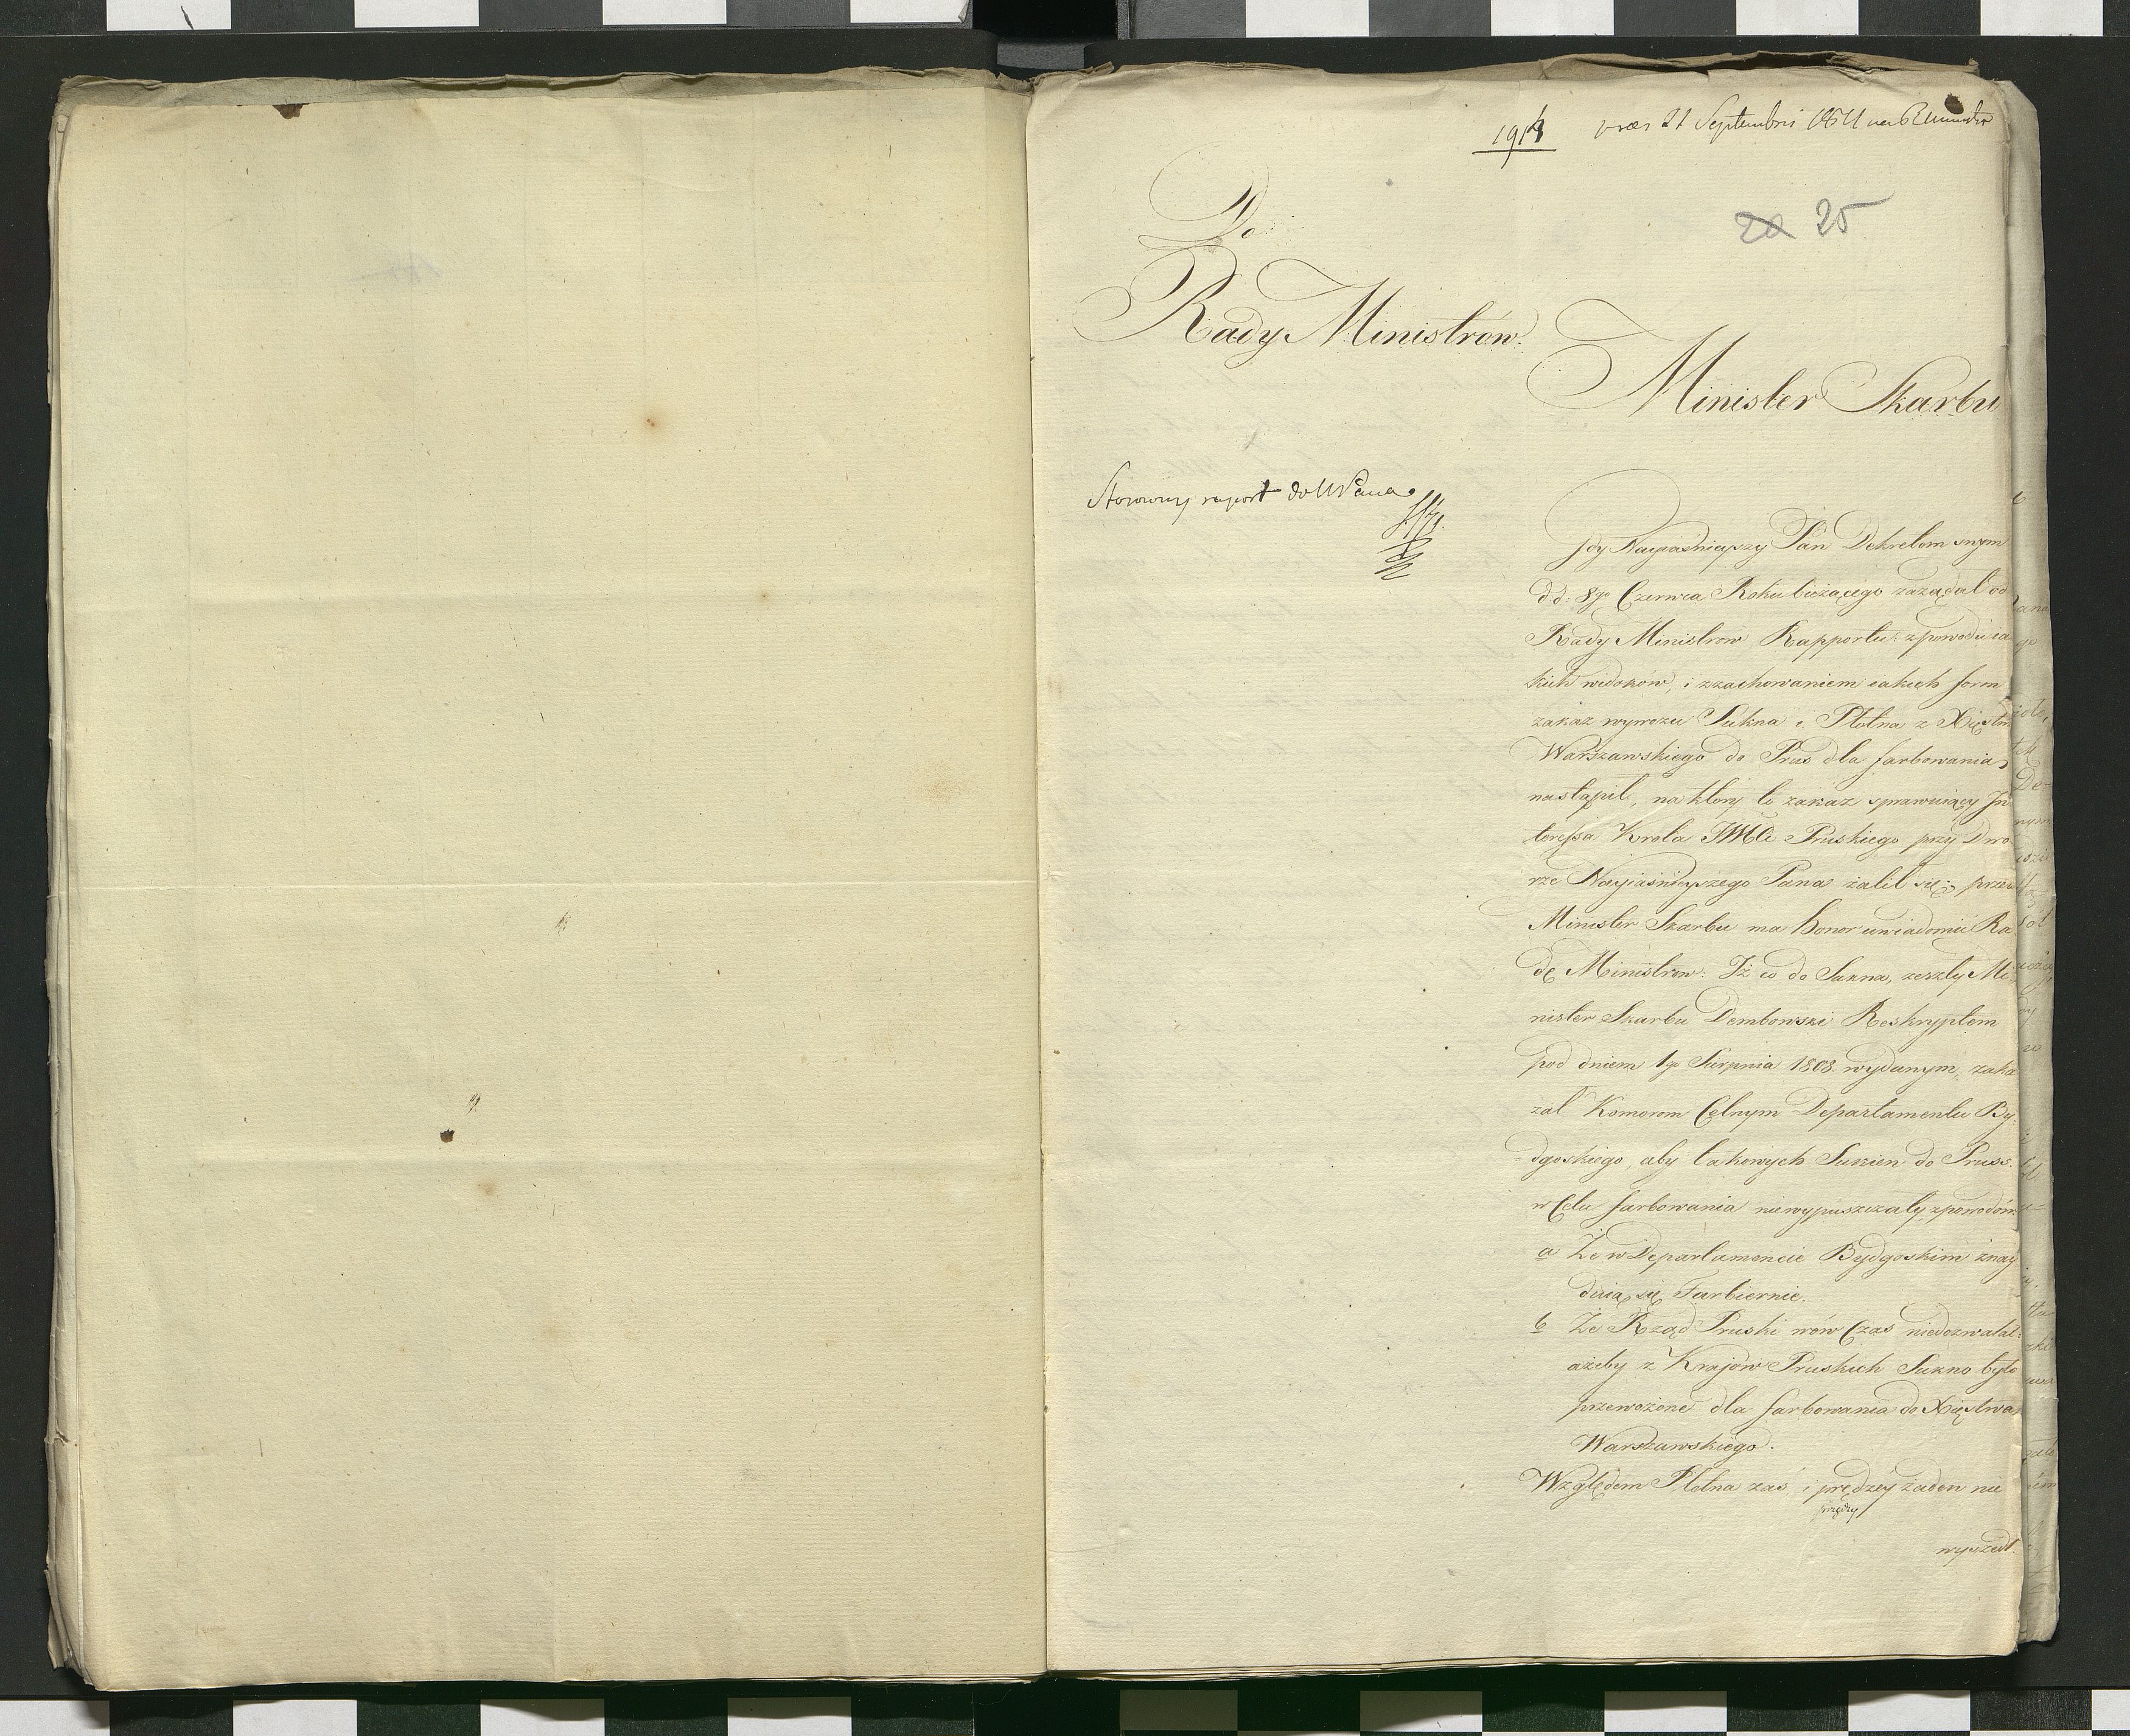 25
Do
Rady Ministrow.
Minister Skarbu
Stosowny raport do NPana
Gdy Nayiaśnieyszy Pan Dekretem swym
dd: 8go Czerwca Roku bieżącego zażądał od
Rady Ministrow Rapportu: z powodu ia
kich widoków, i z zachowaniem iakich form
zakaz wywozu Sukna i Płotna z Xięstw
Warszawskiego do Prus dla farbowania,
nastąpił, na ktory to zakaz sprawuiący In
teressa Krola JMCi Pruskiego przy Dwo
rze Nayiaśnieyszego Pana żalił się; przeto
Minister Skarbu ma honor uwiadomić Ra
dę Ministrow: Iż co do Sukna, zeszły Mi
nister Skarbu Dembowski Reskryptem
pod dniem 1go Sierpnia 1808. wydanym, zaka
zał Komorom Celnym Departamentu By-
dgoskiego, aby takowych Sukien do Pruss.
w Celu farbowania niewypuszczały, z powodów
a Że w Departamencie Bydgoskim znay
duią się Farbiernie.
b Że Rząd Pruski wów Czas niedozwalał
ażeby z Kraiów Pruskich Sukno było
przewożone dla farbowania do Xięstwa
Warszawskiego.
Względem Płotna zaś i prędzey żaden nie
przędzy
wyszedł